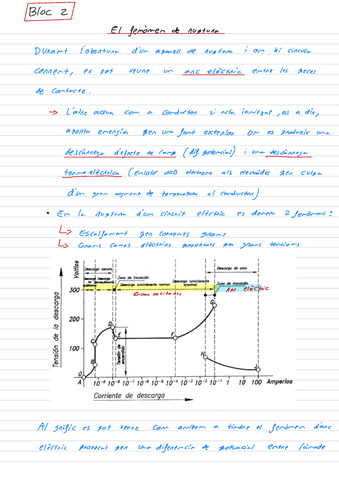 Bloc 2
El fenòmen de ruptura
Durant l'obertura d'un aparell de ruptura i on hi circula
corrent, es pot veure un arc elèctric entre les peces
de contacte.
→ L'aire actua com a conductor si està ionitzat, és a dir,
aporta energia per una font exterior on es produeix una
descàrrega d'efecte de camp (dif. potencial) i una descàrrega
termoelèctrica (enllaç dels electrons als elèctrodes per culpa
d'un gran augment de temperatura al conductor)
• En la ruptura d'un circuit elèctric es donen 2 fenòmens:
↳ Escalfament per corrents grans
↳ Grans camps elèctrics provocats per grans tensions
Descarga oscura
Descarga de arco
Zona de transición
Zona de transición
Descarga luminiscente normal
Arc elèctric
Voltios
Tensión de la descarga
300
200
100
A
B
C
D
E
F
G
H
J
Tensión de encendido
10⁻⁹ 10⁻⁸ 10⁻⁷ 10⁻⁶ 10⁻⁵ 10⁻⁴ 10⁻³ 10⁻² 10⁻¹ 1 10 100 Amperios
Corriente de descarga
Al gràfic es pot veure com arribem a tindre el fenòmen d'arc
elèctric provocat per una diferència de potencial entre l'ànode